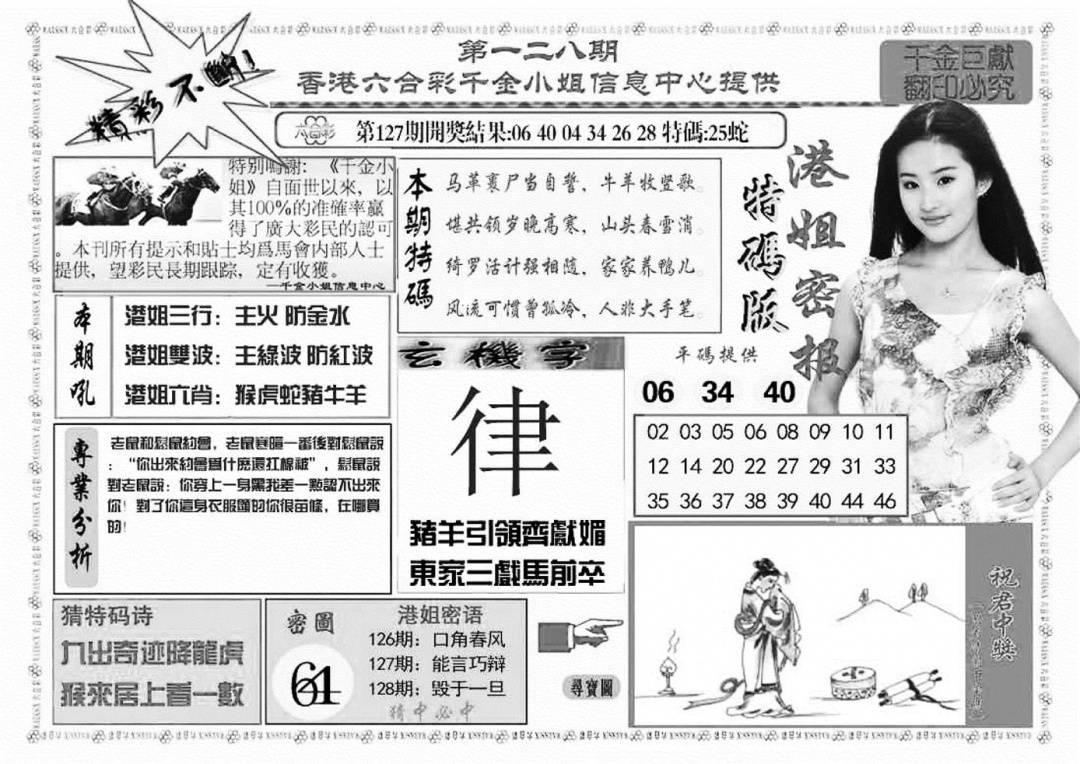 第一二八期
香港六合彩千金小姐信息中心提供
千金巨獻
翻印必究
精彩不斷!
六合彩
第127期開獎結果:06 40 04 34 26 28 特碼:25蛇
特别鳴謝:《千金小
姐》自面世以來，以
其100%的准確率贏
得了廣大彩民的認可
。本刊所有提示和貼士均爲馬會内部人士
提供，望彩民長期跟踪，定有收獲。
—千金小姐信息中心
本期特碼
马革裹尸当自誓，牛羊牧竖歌。
堪共领岁晚高寒，山头春雪消。
绮罗活计强相随，家家养鸭儿。
风流可惯曾孤冷，人非大手笔。
特碼版
港姐密报
本期吼
港姐三行：主火 防金水
港姐雙波：主綠波 防紅波
港姐六肖：猴虎蛇豬牛羊
玄機字
律
豬羊引領齊獻媚
東家三戲馬前卒
平碼提供
06 34 40
02 03 05 06 08 09 10 11
12 14 20 22 27 29 31 33
35 36 37 38 39 40 44 46
專業分析
老鼠和鬆鼠約會，老鼠寒暄一番後對鬆鼠説
：“你出來約會爲什麽還扛棉被”，鬆鼠説
對老鼠説：你穿上一身黑我差一點認不出來
你！對了你這身衣服顯的你很苗條，在哪買
的！
猜特码诗
九出奇迹降龍虎
猴來居上看一數
密圖
61
港姐密语
126期：口角春风
127期：能言巧辩
128期：毁于一旦
猜中必中
尋寶圖
祝君中獎